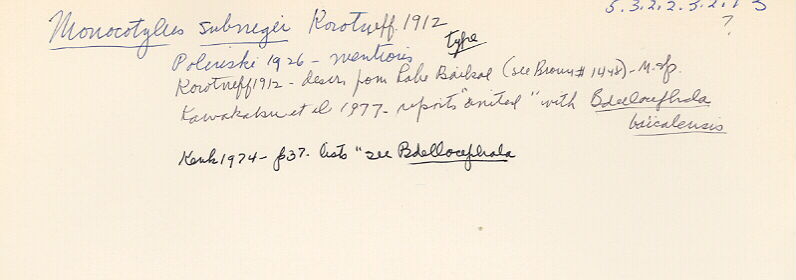 5.3.2.2.5.2.1 5
?
Monocotylus subnegei Korotneff 1912
type
Polinski 1926 - mentions
Korotneff 1912 - descr. from Lake Baikal (see Brown # 1448) - M. sp.
Kawakatsu et al 1977 - reports "united" with Bdellocephala
baicalensis
Kenk 1974 - p37 - lists "see Bdellocephala